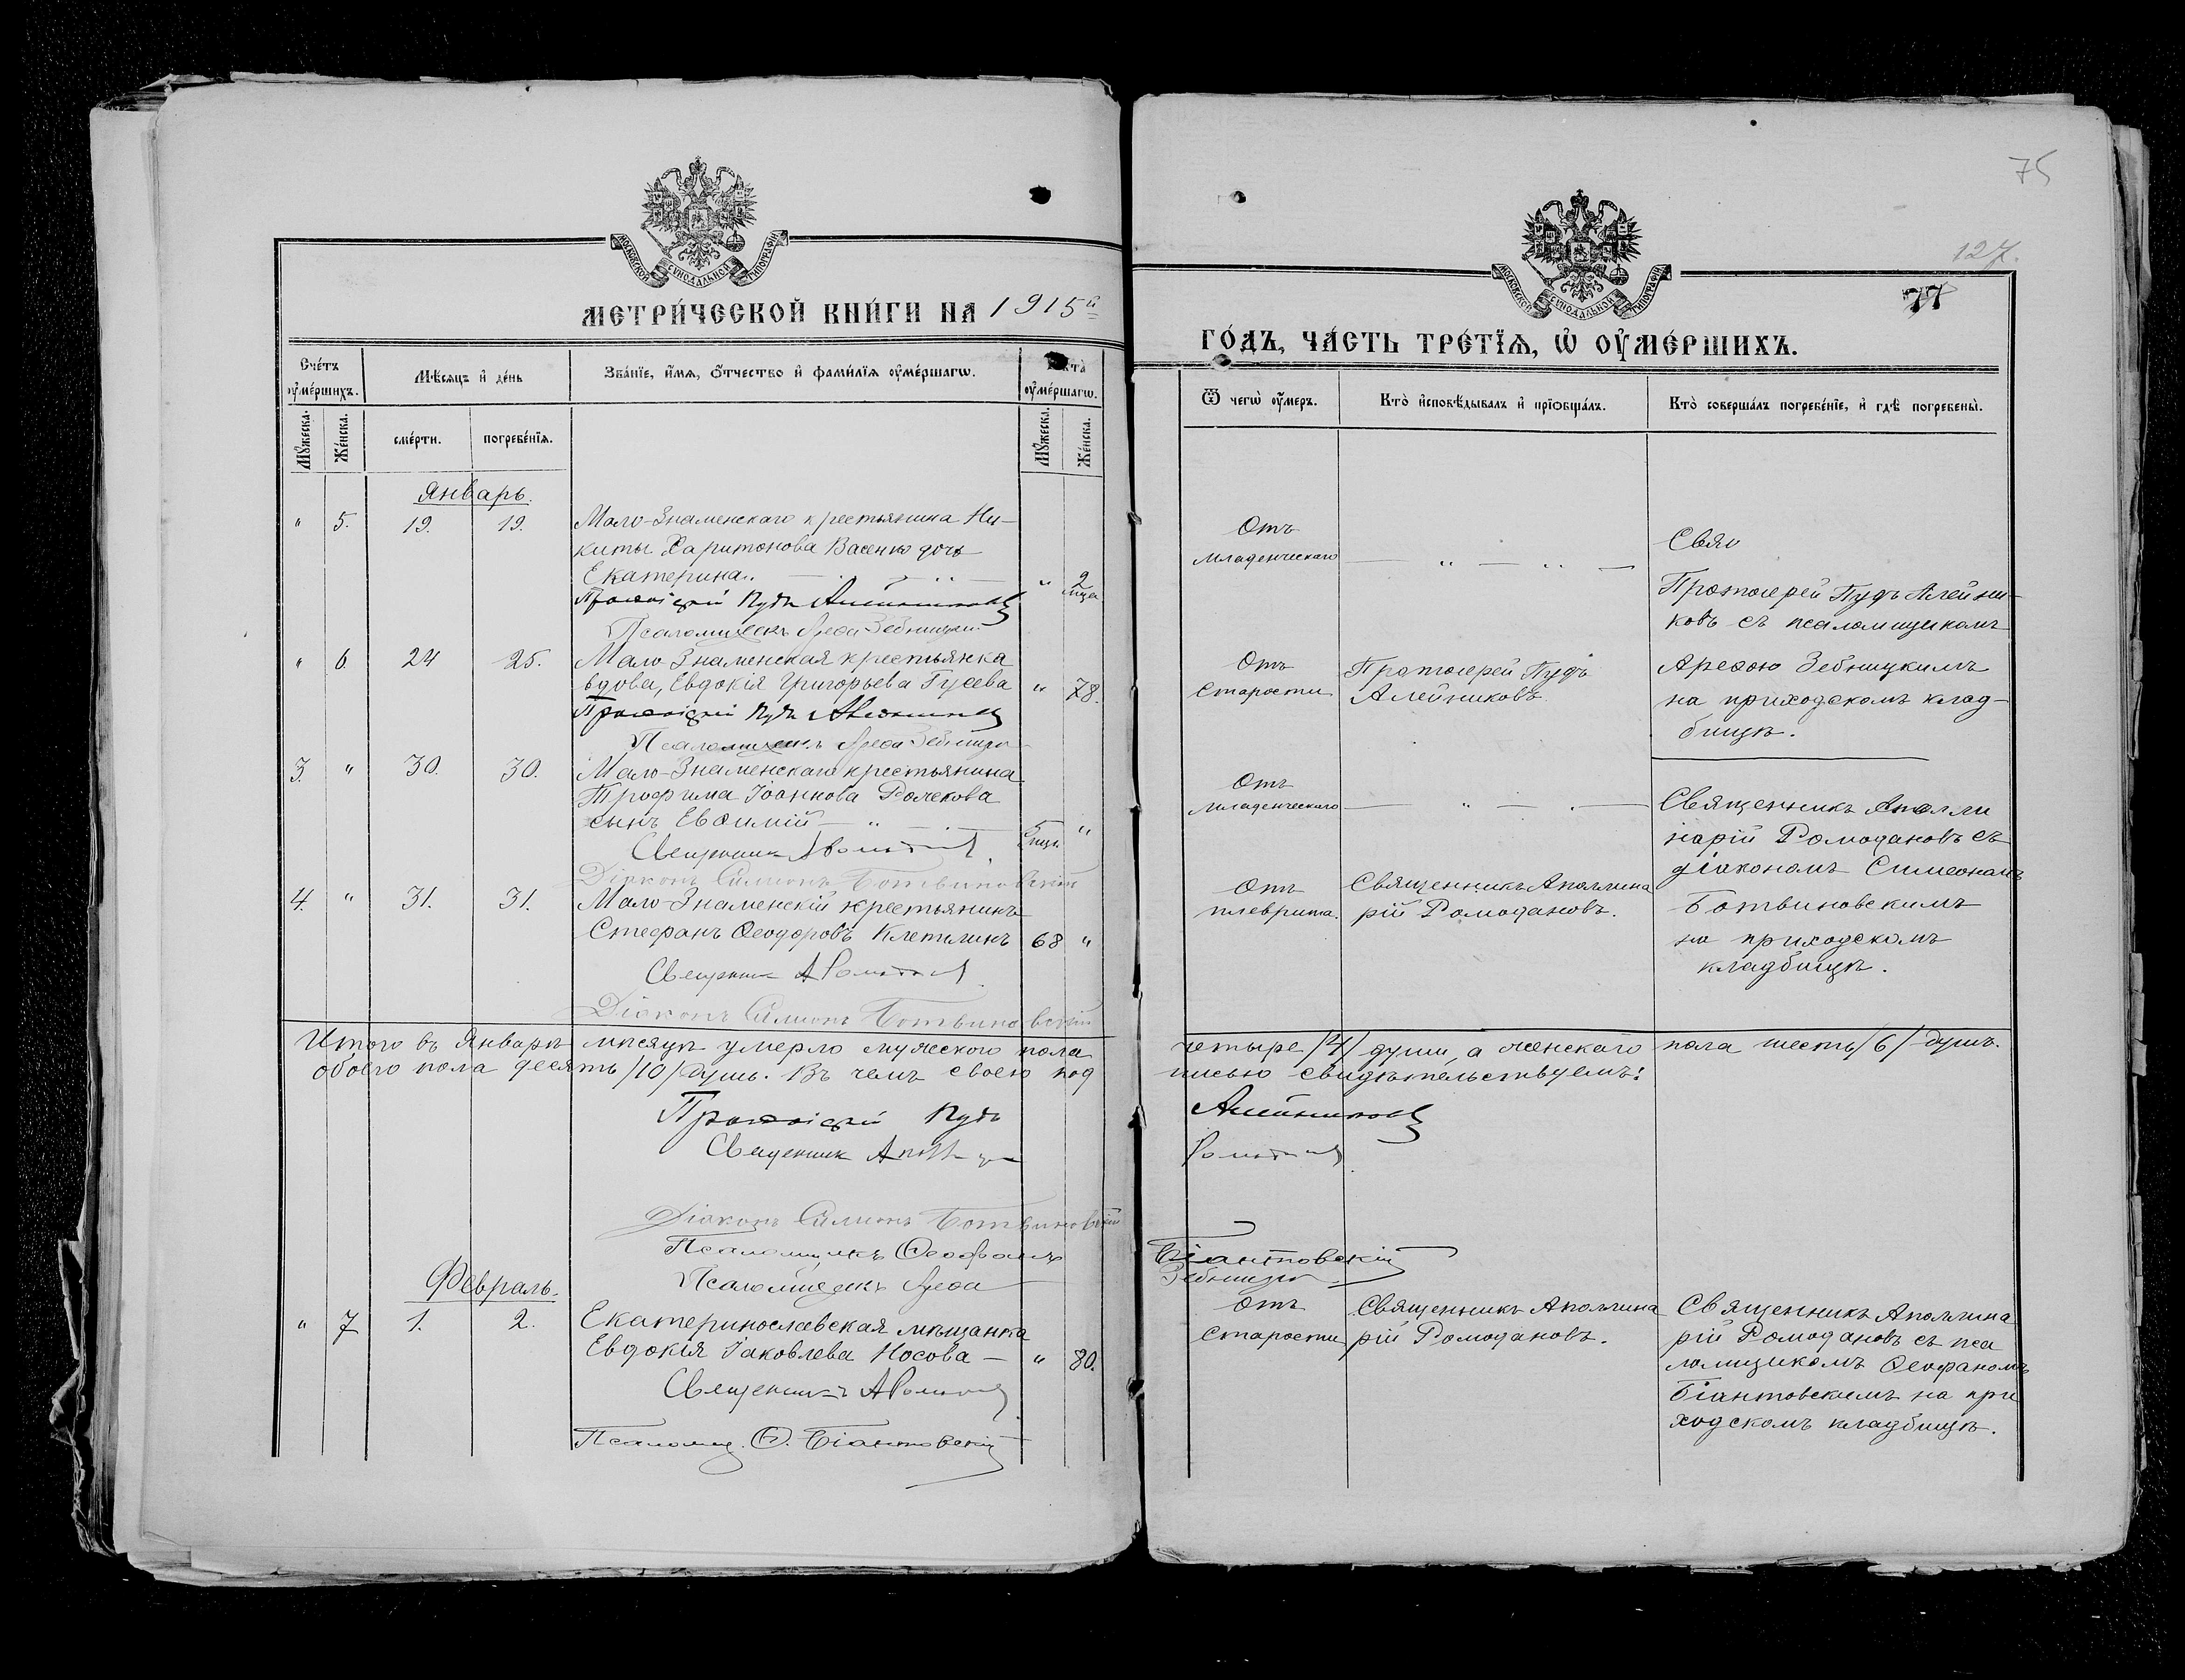 МОСКОВСКОЙ СѴНОДАЛЬНОЙ ТИПОГРАФІИ
МЕТРИ́ЧЕСКОЙ КНИ́ГИ НА 1915й
Сче́тъ оу҆ме́ршихъ.
Мѣ́сяцъ и҆ де́нь
Зва́нїе, и҆́мѧ, ѻ҆́тчество и҆ фами́лїѧ оу҆ме́ршагѡ.
Лѣ́та оу҆ме́ршагѡ.
Мꙋ́жеска.
Же́нска.
сме́рти.
погребе́нїѧ.
Мꙋ́жеска.
Же́нска.
Январь.
" 5. 19. 19. Мало-Знаменскаго крестьянина Ни-
киты Харитонова Васенко дочь
Екатерина. " 2 мца
Протоіерей Пудъ Алейниковъ
Псаломщикъ Ареѳа Зебницкій
" 6. 24 25. Мало-Знаменская крестьянка
вдова, Евдокія Григорьева Гусева " 78.
Протоіерей Пудъ Алейниковъ
Псаломщикъ Ареѳа Зебницкій
3. " 30. 30. Мало-Знаменскаго крестьянина
Трофима Іоаннова
сынъ Евѳимій 5 мцв "
Священникъ А Ромодановъ
Діаконъ Симеонъ Ботвиновскій
4. " 31. 31. Мало-Знаменскій крестьянинъ
Стефанъ Ѳеодоровъ 68 "
Священникъ А Ромодановъ
Діаконъ Симеонъ Ботвиновскій
Итого въ Январѣ мѣсяцѣ умерло мужеского пола
обоего пола десять /10/ душъ. Въ чемъ своею под
Протоіерей Пудъ
Священникъ Аполлинарій
Діаконъ Симеонъ Ботвиновскій
Псаломщикъ Ѳеофанъ
Псаломщикъ Ареѳа
Февраль.
" 7 1. 2. Екатеринославская мѣщанка
Евдокія Іаковлева Носова — " 80.
Священникъ А Ромодановъ
Псаломщ. Ѳ. Біантовскій
75
127.
77
МОСКОВСКОЙ СѴНОДАЛЬНОЙ ТИПОГРАФІИ
ГО́ДЪ, ЧА́СТЬ ТРЕ́ТЇѦ, Ѡ҆ ОУ҆МЕ́РШИХЪ.
Ѿ чегѡ̀ оу҆́меръ.
Кто̀ и҆сповѣ́дывалъ и҆ прїѡбща́лъ.
Кто̀ соверша́лъ погребе́нїе, и҆ гдѣ̀ погребены̀.
Отъ
младенческаго
Свяо
Протоіерей Пудъ Алейни-
ковъ съ псаломщикомъ
Отъ
старости
Протоіерей Пудъ
Алейниковъ
Ареѳою Зебницкимъ
на приходскомъ клад-
бищѣ.
Отъ
младенческаго
Священникъ Аполли
нарій Ромодановъ съ
діакономъ Симеономъ
Отъ
плеврита.
Священникъ Аполлина
рій Ромодановъ.
Ботвиновскимъ
на приходскомъ
кладбищѣ.
четыре /4/ души, а женскаго пола шесть /6/ душъ.
писью свидѣтельствуемъ:
Алейниковъ
Ромодановъ
Біантовскій
Зебницкій
Отъ
старости
Священникъ Аполлина
рій Ромодановъ.
Священникъ Аполлина
рій Ромодановъ съ пса
ломщикомъ Ѳеофаномъ
Біантовскимъ на при
ходскомъ кладбищѣ.